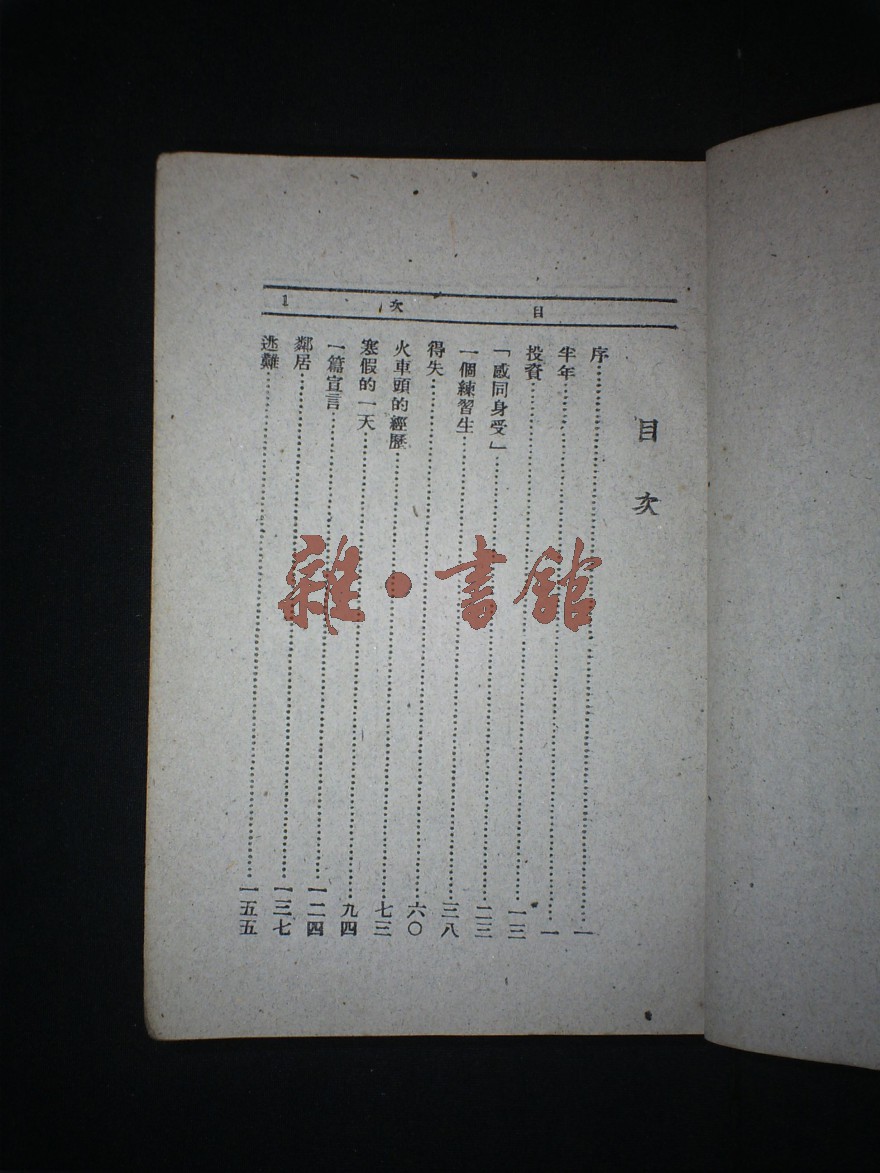 目 次 1
目 次
序 一
半年 一
投資 一三
「感同身受」 二三
一個練習生 三八
得失 六〇
火車頭的經歷 七三
寒假的一天 九四
一篇宣言 一二四
鄰居 一三七
逃難 一五五
雜·書館